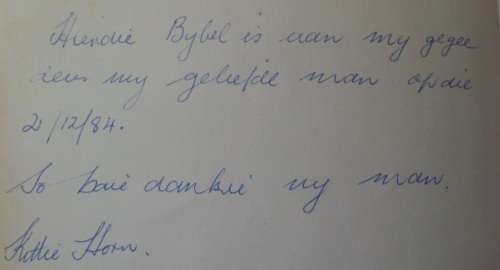 Hierdie Bybel is aan my gegee
deur my geliefde man op die
2/12/84.
So baie dankie my man.
Horn.